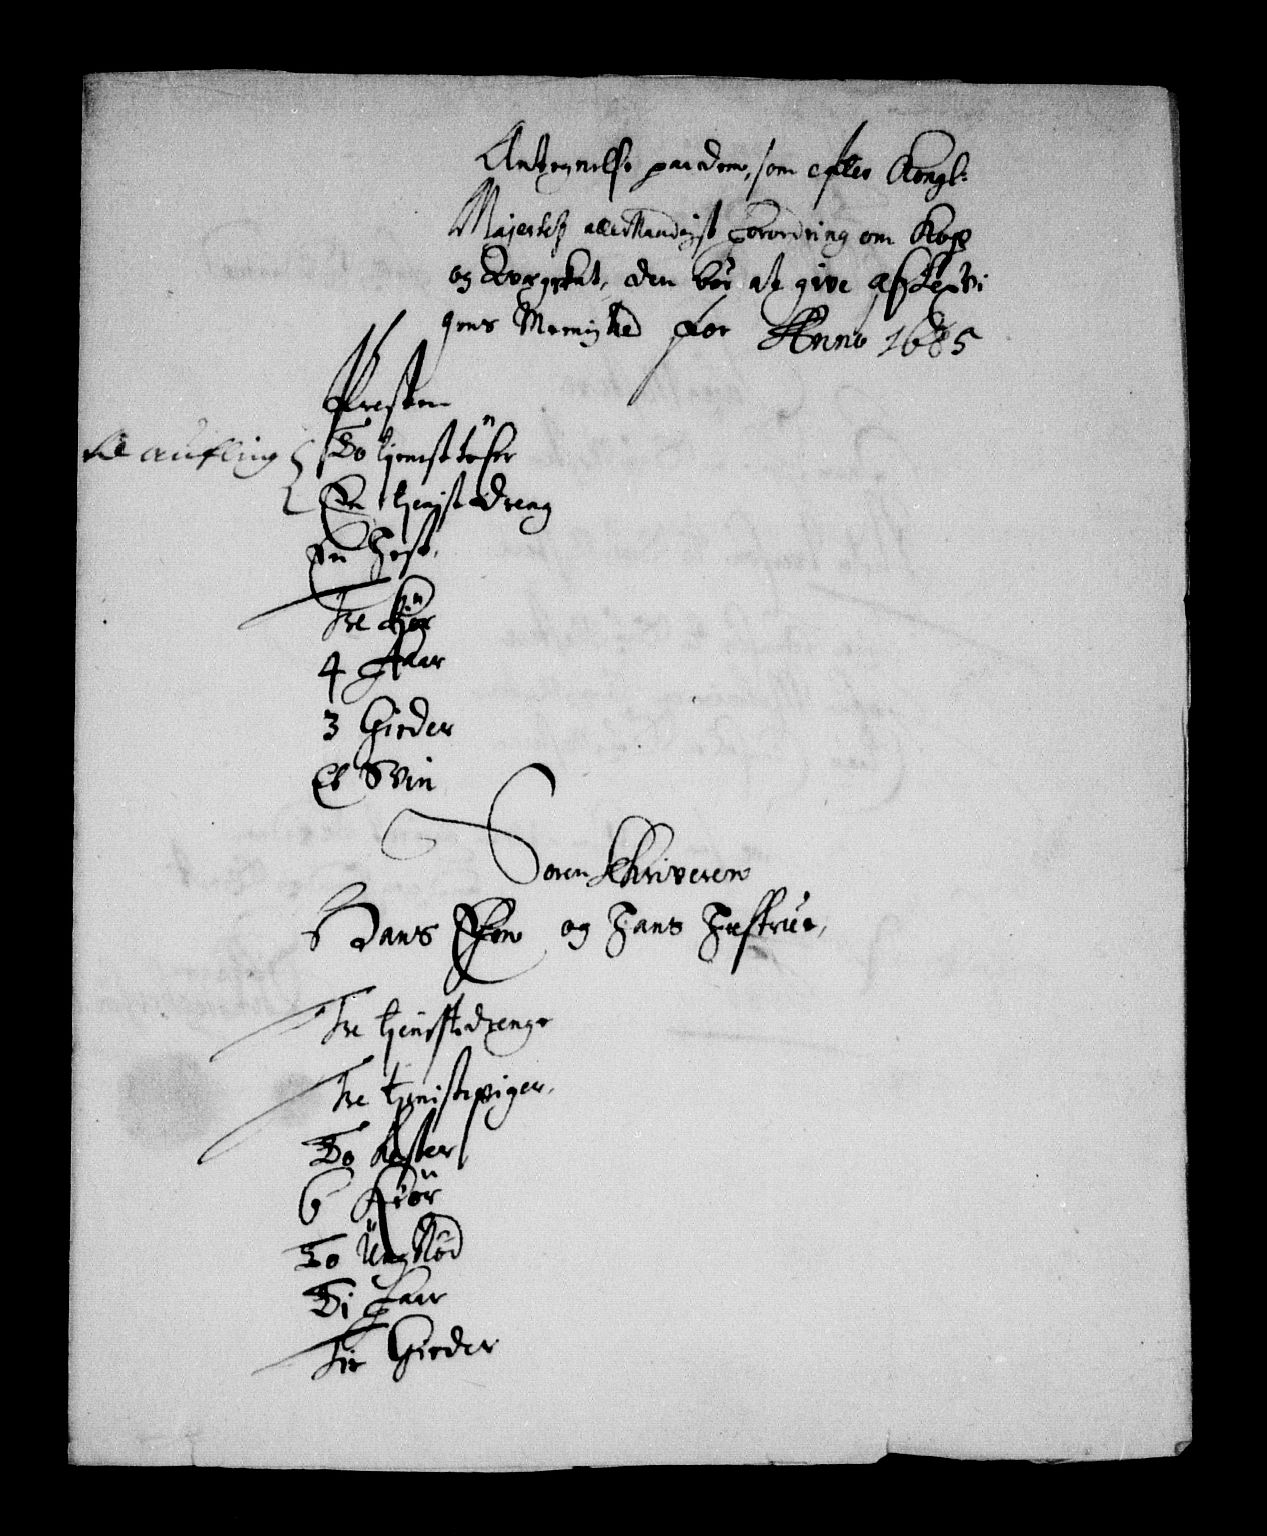 Antegnelse paa dem, som efter Kongl:
Majestetz allernaadigst forordning om Kop
og Qvegskat, den bør at give af Lexvi
gens Menighed for Anno 1685
Presten
To tienisttøser
En tienistedreng
En Hest.
Tre Kiør
4 Faar
3 Gieder
Et Svin
Søren Schriveren
Hans og Hans Hustrue,
Tre tienistedrenge
Tre tienistepiger.
To Hester
6 Kiør
To Ung Nød
Ti Faar
Tie Gieder